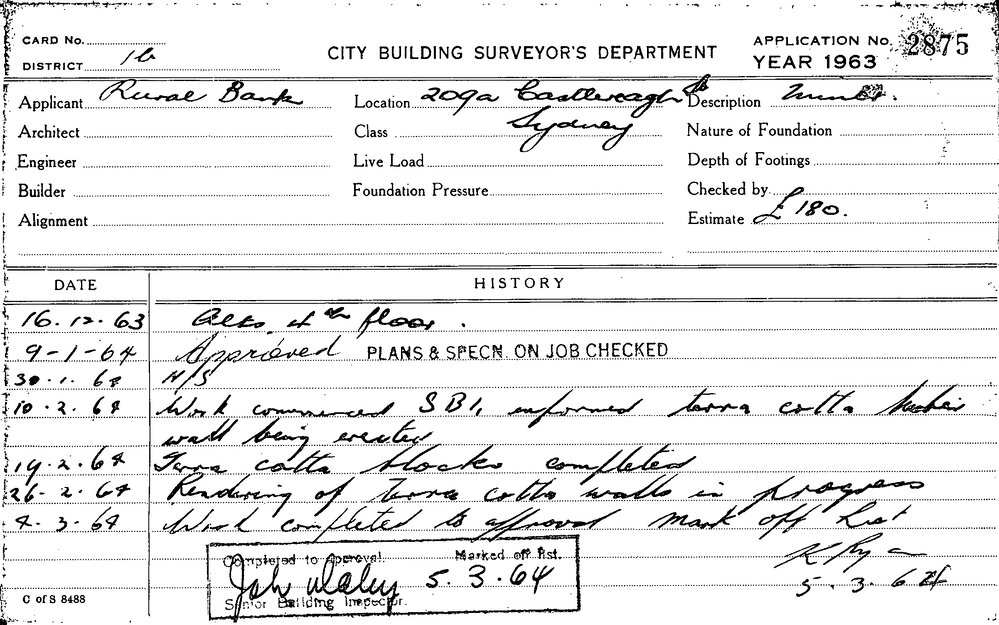 CARD No.
DISTRICT 1b
CITY BUILDING SURVEYOR'S DEPARTMENT
APPLICATION No. 2875
YEAR 1963
Applicant Rural Bank
Location 209a Castlereagh St
Sydney
Description
Architect
Class
Nature of Foundation
Engineer
Live Load
Depth of Footings
Builder
Foundation Pressure
Checked by
Alignment
Estimate £180.
DATE HISTORY
16.12.63 Alts. 4th floor.
9-1-64 Approved PLANS & SPECN. ON JOB CHECKED
30.1.64 N/S
10.2.64 Work commenced SB1, informed terra cotta
wall being erected
19.2.64 Terra cotta blocks completed
26.2.64 Rendering of terra cotta walls in progress
4.3.64 Work completed to approval mark off list
K Ryan
5.3.64
Completed to Approval. Marked off list.
5.3.64
Senior Building Inspector.
C of S 8488